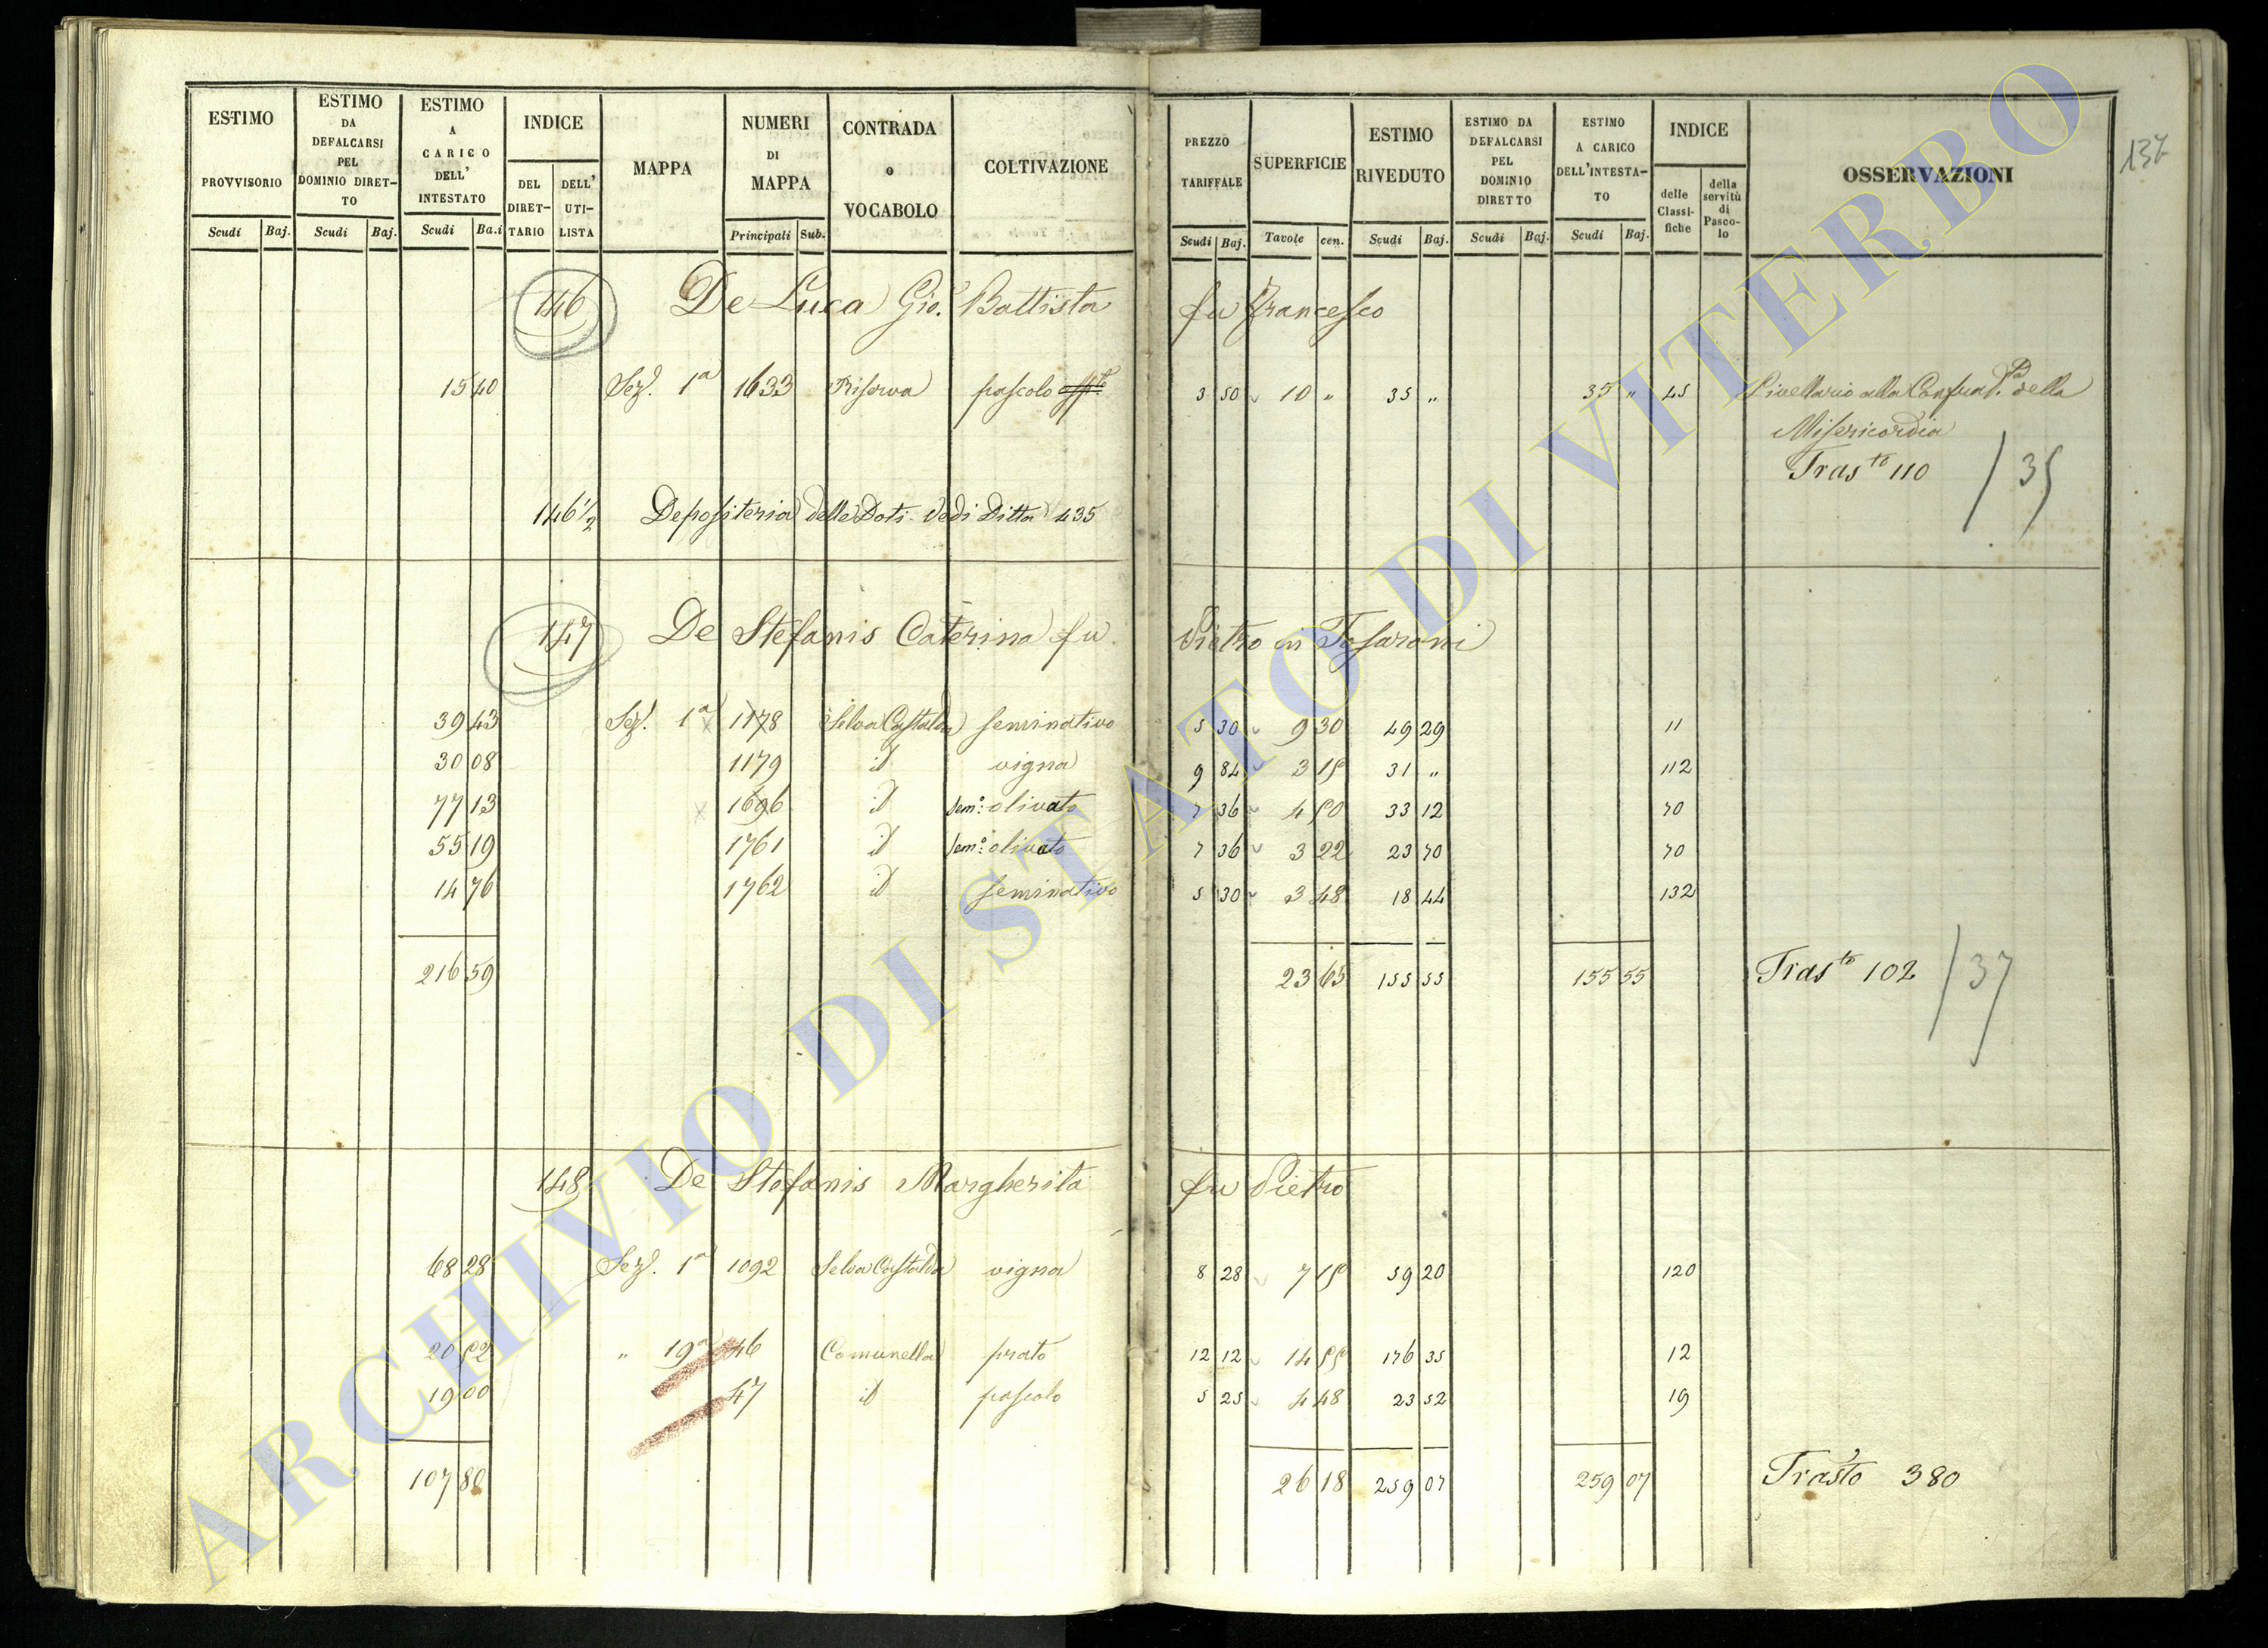 137
ESTIMO PROVVISORIO Scudi Baj.
ESTIMO DA DEFALCARSI PEL DOMINIO DIRETTO Scudi Baj.
ESTIMO A CARICO DELL' INTESTATO Scudi Ba.i
INDICE DEL DIRETTARIO DELL' UTILISTA
MAPPA
NUMERI DI MAPPA Principali Sub.
CONTRADA o VOCABOLO
COLTIVAZIONE
PREZZO TARIFFALE Scudi Baj.
SUPERFICIE Tavole cen.
ESTIMO RIVEDUTO Scudi Baj.
ESTIMO DA DEFALCARSI PEL DOMINIO DIRETTO Scudi Baj.
ESTIMO A CARICO DELL'INTESTATO Scudi Baj.
INDICE delle Classifiche della servitù di Pascolo
OSSERVAZIONI
146 De Luca Gio. Battista fu Francesco
15 40 Sez. 1a 1633 Riserva pascolo 3 50 10 " 35 " 35 " 45 Livellario alla Confrat. della
Misericordia
Tras.to 110 / 35
146 1/2 Depositeria delle Doti. Vedi Ditta 435
147 De Stefanis Caterina fu Pietro in
39 43 Sez. 1a 1178 Selva Castalda seminativo 5 30 9 30 49 29 11
30 08 1179 id vigna 9 84 3 15 31 " 112
77 13 1696 id sem: olivato 7 36 4 50 33 12 70
55 19 1761 id sem: olivato 7 36 3 22 23 70 70
14 76 1762 id seminativo 5 30 3 48 18 44 132
216 59 23 65 155 55 155 55 Tras.to 102 / 37
148 De Stefanis Margherita fu Pietro
68 28 Sez. 1a 1092 Selva Castalda vigna 8 28 7 15 59 20 120
20 52 " 19a 46 Comunella prato 12 12 14 55 176 35 12
19 00 47 id pascolo 5 25 4 48 23 52 19
107 80 26 18 259 07 259 07 Trasto 380
ARCHIVIO DI STATO DI VITERBO